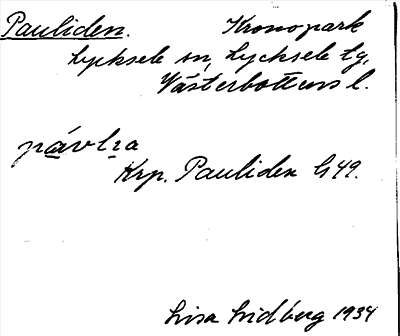 Pauliden. Kronopark
Lycksele sn, Lycksele tg,
Västerbottens l.
pávlıa
Krp. Pauliden G49.
Lisa Lidberg 1934